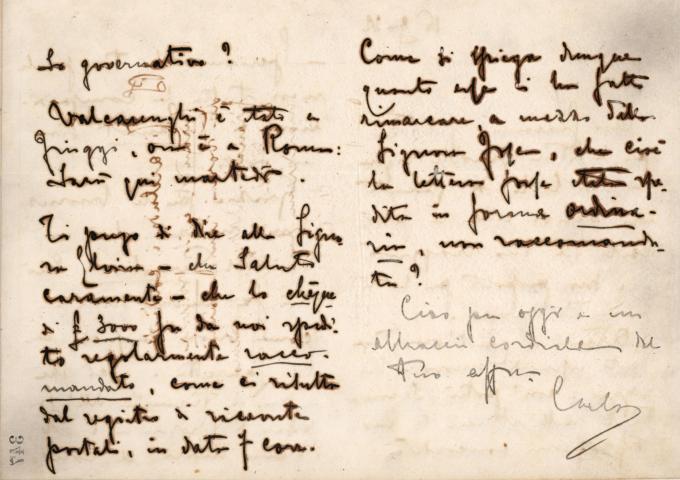 Lo governativo?
Valcarenghi è stato a
Fiuggi, ora è a Roma:
Sarà qui martedì.
Ti prego di dire alla Signo
ra Elvira – che saluto
caramente – che lo chèque
di £ 3000 fu da noi spedi-
to regolarmente racco-
mandato, come ci risulta
dal registro di ricevute
postali, in data 7 corr.
Come si spiega dunque
quanto essa ci ha fatto
rimarcare, a mezzo della
Signora, che cioè
la lettera fosse stata spe-
dita in forma ordina-
ria, non raccomanda-
ta?
Ciao per oggi e un
abbraccio cordiale dal
tuo affmo.
Carlo
347